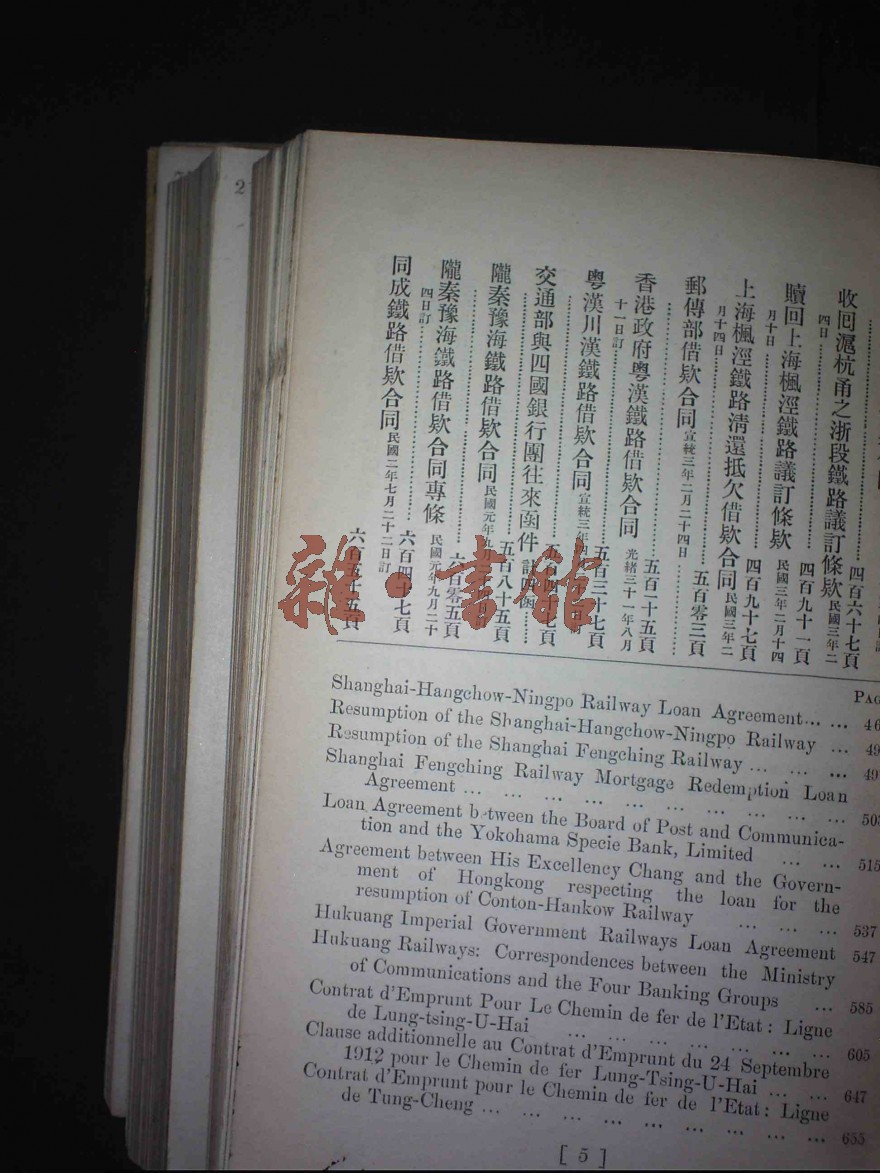 收回滬杭甬之浙段鐵路議訂條欵民國三年二
四日……四百六十七頁
贖回上海楓涇鐵路議訂條欵民國三年二月十四
月十日……四百九十一頁
上海楓涇鐵路清還抵欠借欵合同民國三年二
月十四日……四百九十七頁
郵傳部借欵合同宣統三年二月二十四日……五百零三頁
香港政府粵漢鐵路借欵合同光緒三十一年八月
十一日訂……五百十五頁
粵漢川漢鐵路借欵合同宣統三年
……五百三十七頁
交通部與四國銀行團往來函件
……五百四十七頁
隴秦豫海鐵路借欵合同民國元年九月
……五百八十五頁
隴秦豫海鐵路借欵合同專條民國元年九月二十
四日訂……六百零五頁
同成鐵路借欵合同民國二年七月二十二日訂
……六百四十七頁
六百五十五頁
雜·書館
PAG
Shanghai-Hangchow-Ningpo Railway Loan Agreement... ... 46
Resumption of the Shanghai-Hangchow-Ningpo Railway ... 49
Resumption of the Shanghai Fengching Railway ... ... ... 49
Shanghai Fengching Railway Mortgage Redemption Loan
Agreement ... ... ... ... ... ... ... ... ... ... 503
Loan Agreement between the Board of Post and Communica-
tion and the Yokohama Specie Bank, Limited ... ... 515
Agreement between His Excellency Chang and the Govern-
ment of Hongkong respecting the loan for the
resumption of Conton-Hankow Railway ... ... ... 537
Hukuang Imperial Government Railways Loan Agreement 547
Hukuang Railways: Correspondences between the Ministry
of Communications and the Four Banking Groups ... 585
Contrat d'Emprunt Pour Le Chemin de fer de l'Etat: Ligne
de Lung-tsing-U-Hai ... ... ... ... ... ... ... 605
Clause additionnelle au Contrat d'Emprunt du 24 Septembre
1912 pour le Chemin de fer Lung-Tsing-U-Hai ... ... 647
Contrat d'Emprunt pour le Chemin de fer de l'Etat: Ligne
de Tung-Cheng ... ... ... ... ... ... ... ... ... 655
[ 5 ]
2